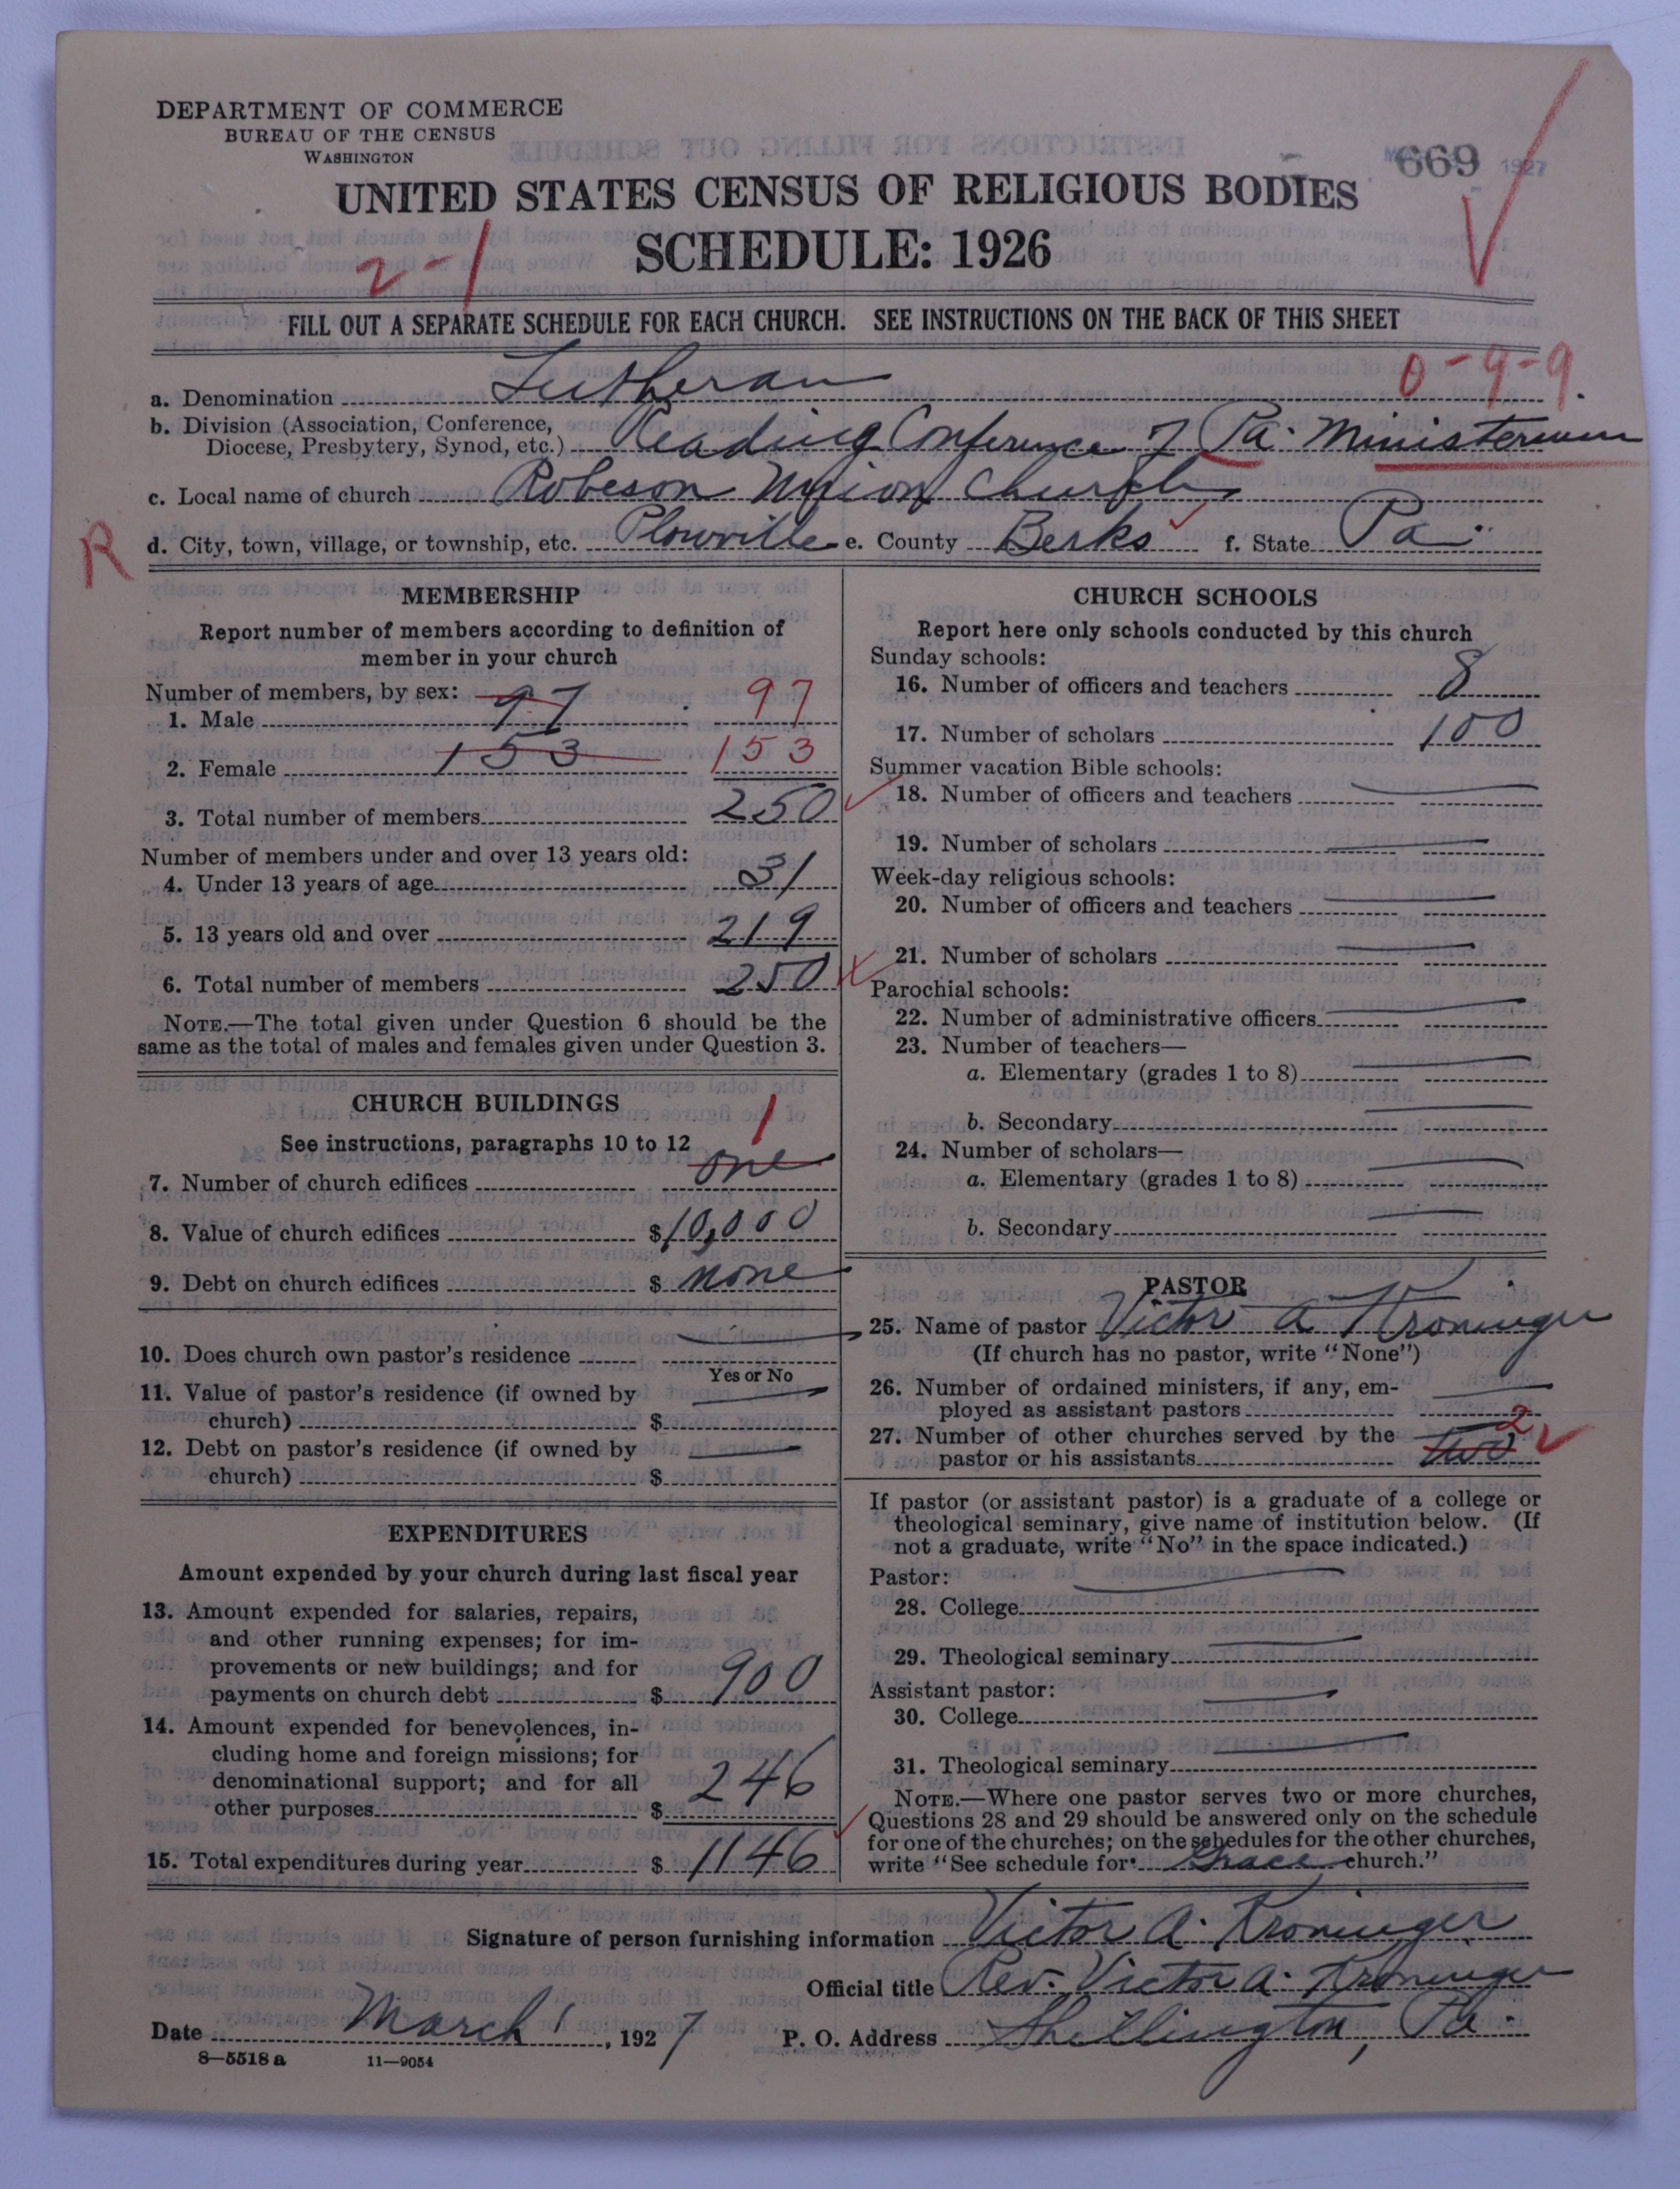 DEPARTMENT OF COMMERCE
BUREAU OF THE CENSUS
WASHINGTON
669
1927
UNITED STATES CENSUS OF RELIGIOUS BODIES
SCHEDULE: 1926
2-1
FILL OUT A SEPARATE SCHEDULE FOR EACH CHURCH. SEE INSTRUCTIONS ON THE BACK OF THIS SHEET
0-9-9
a. Denomination Lutheran
b. Division (Association, Conference,
Diocese, Presbytery, Synod, etc.) Reading Conference of Pa. Ministerium
c. Local name of church Robeson Union Church
R
d. City, town, village, or township, etc. Plowville e. County Berks f. State Pa.
MEMBERSHIP
Report number of members according to definition of
member in your church
Number of members, by sex:
1. Male 97 97
2. Female 153 153
3. Total number of members 250
Number of members under and over 13 years old:
4. Under 13 years of age 31
5. 13 years old and over 219
6. Total number of members 250
NOTE.—The total given under Question 6 should be the
same as the total of males and females given under Question 3.
CHURCH BUILDINGS
See instructions, paragraphs 10 to 12
1
7. Number of church edifices one
8. Value of church edifices $10,000
9. Debt on church edifices $ none
10. Does church own pastor's residence
Yes or No
11. Value of pastor's residence (if owned by
church) $
12. Debt on pastor's residence (if owned by
church) $
EXPENDITURES
Amount expended by your church during last fiscal year
13. Amount expended for salaries, repairs,
and other running expenses; for im-
provements or new buildings; and for
payments on church debt $ 900
14. Amount expended for benevolences, in-
cluding home and foreign missions; for
denominational support; and for all
other purposes $ 246
15. Total expenditures during year $ 1146
CHURCH SCHOOLS
Report here only schools conducted by this church
Sunday schools:
16. Number of officers and teachers 8
17. Number of scholars 100
Summer vacation Bible schools:
18. Number of officers and teachers
19. Number of scholars
Week-day religious schools:
20. Number of officers and teachers
21. Number of scholars
Parochial schools:
22. Number of administrative officers
23. Number of teachers—
a. Elementary (grades 1 to 8)
b. Secondary
24. Number of scholars—
a. Elementary (grades 1 to 8)
b. Secondary
PASTOR
25. Name of pastor Victor A Kroninger
(If church has no pastor, write "None")
26. Number of ordained ministers, if any, em-
ployed as assistant pastors
27. Number of other churches served by the
pastor or his assistants two 2
If pastor (or assistant pastor) is a graduate of a college or
theological seminary, give name of institution below. (If
not a graduate, write "No" in the space indicated.)
Pastor:
28. College
29. Theological seminary
Assistant pastor:
30. College
31. Theological seminary
NOTE.—Where one pastor serves two or more churches,
Questions 28 and 29 should be answered only on the schedule
for one of the churches; on the schedules for the other churches,
write "See schedule for Grace church."
Signature of person furnishing information Victor A. Kroninger
Official title Rev. Victor A. Kroninger
Date March 1, 1927 P. O. Address Shillington, Pa.
8—5518 a 11—9054